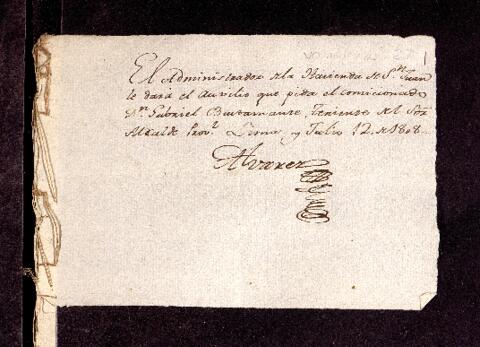 1
El Administrador dela Hacienda de Sn. Juan
le dará el Auxilio que pida el comicionado
Dn. Gabriel Bustamante, Teniente del Sor.
Alcalde Provl. Lima y Julio 12. de 1808.
Alvarez